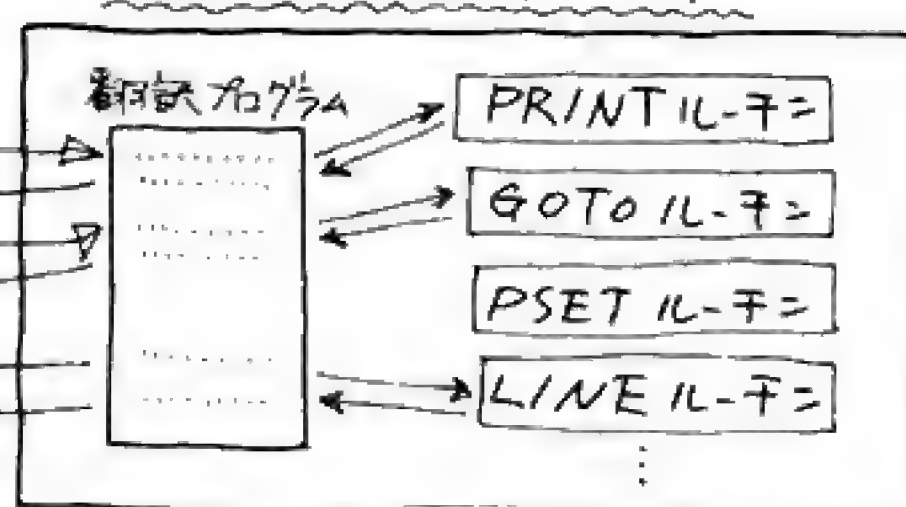 翻訳プログラム
PRINTルーチン
GOTOルーチン
PSETルーチン
LINEルーチン
⋮